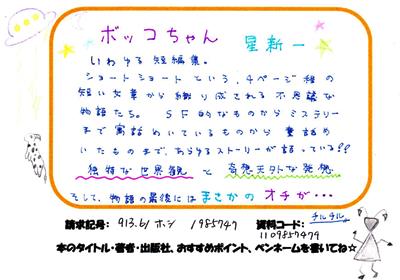 ボッコちゃん
星新一
いわゆる短編集。
ショートショートという、4ページ程の
短い文章から織り成される不思議な
物語たち。SF的なものからミステリー
まで寓話めいているものから童話め
いたものまで、あらゆるストーリーが詰っている!!
独特な世界観と奇想天外な発想
そして、物語の最後にはまさかのオチが…
請求記号: 913.61 ホシ 1985747 資料コード: チルチル
1109857479
本のタイトル・著者・出版社、おすすめポイント、ペンネームを書いてね☆